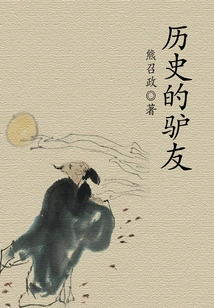 历史的驴友
熊召政◎著